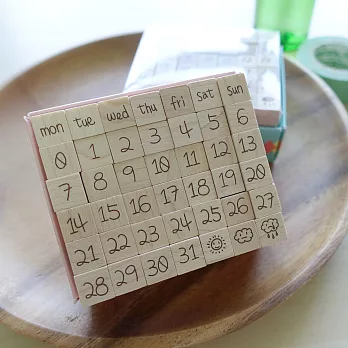 mon tue wed thu fri sat sun
0 1 2 3 4 5 6
7 8 9 10 11 12 13
14 15 16 17 18 19 20
21 22 23 24 25 26 27
28 29 30 31